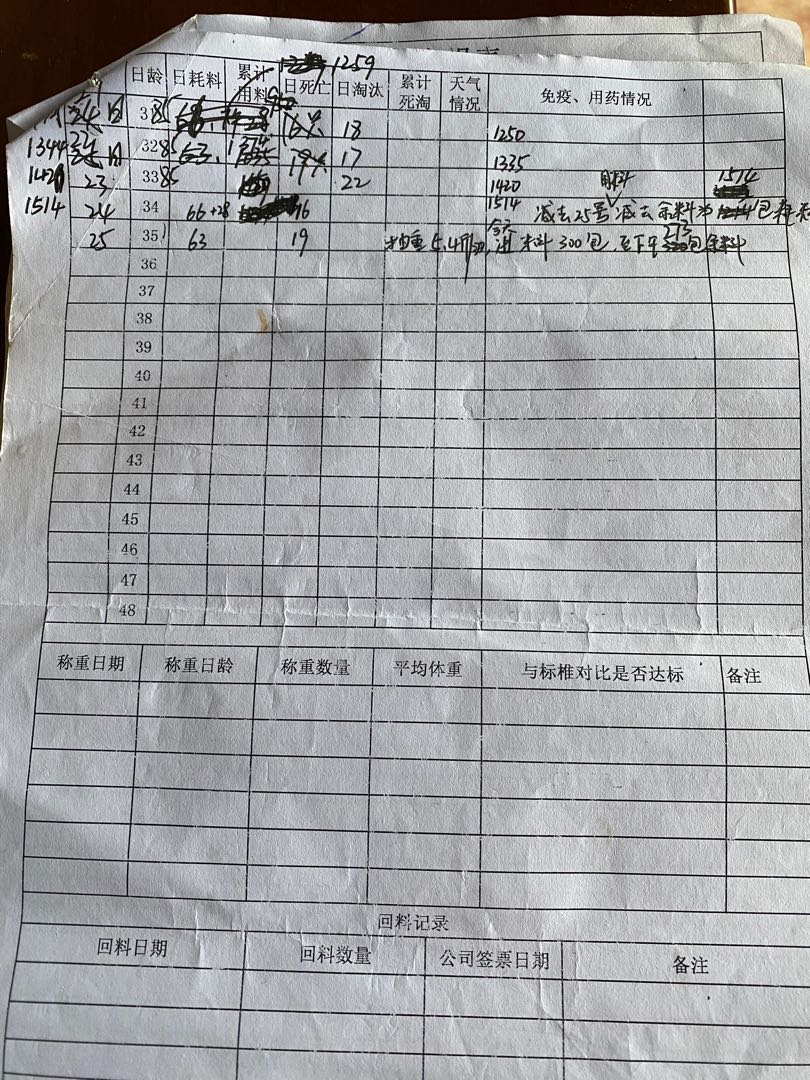 1259
日龄 日耗料 累计用料 日死亡 日淘汰 累计死淘 天气情况 免疫、用药情况
31 85 18 1250
1344 32 85 63 17 1335
1420 23 33 85 22 1420 1514
1514 24 34 66+28 16 1514 减去25号 减去余料为 包
25 35 63 19 5.4斤 今天 料300包 至下午 273 包余料
36
37
38
39
40
41
42
43
44
45
46
47
48
称重日期 称重日龄 称重数量 平均体重 与标椎对比是否达标 备注
回料记录
回料日期 回料数量 公司签票日期 备注